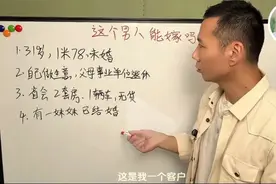 这个男人能嫁吗
1. 31岁，1米78、未婚
2、自己做生意，父母事业单位退休
3、省会2套房、1辆车，无贷
4、有一妹妹已结婚
这是我一个客户